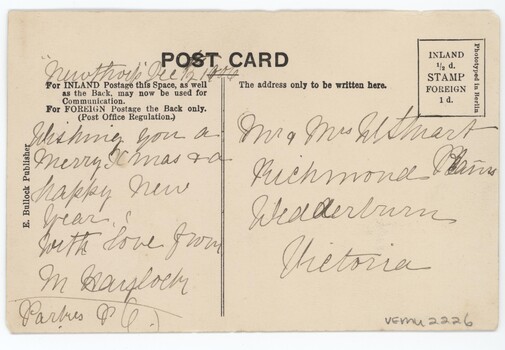 POST CARD
"Newthorp" Dec 12
For INLAND Postage this Space, as well
as the Back, may now be used for
Communication.
For FOREIGN Postage the Back only.
(Post Office Regulation.)
Wishing you a
Merry Xmas & a
happy New
Year.
With love from
M Haylock
Parkes P O.
E. Bullock Publisher
The address only to be written here.
INLAND
½ d.
STAMP
FOREIGN
1 d.
Phototyped in Berlin
Mr & Mrs W Stuart
Richmond Plains
Wedderburn
Victoria
VEMU 2226